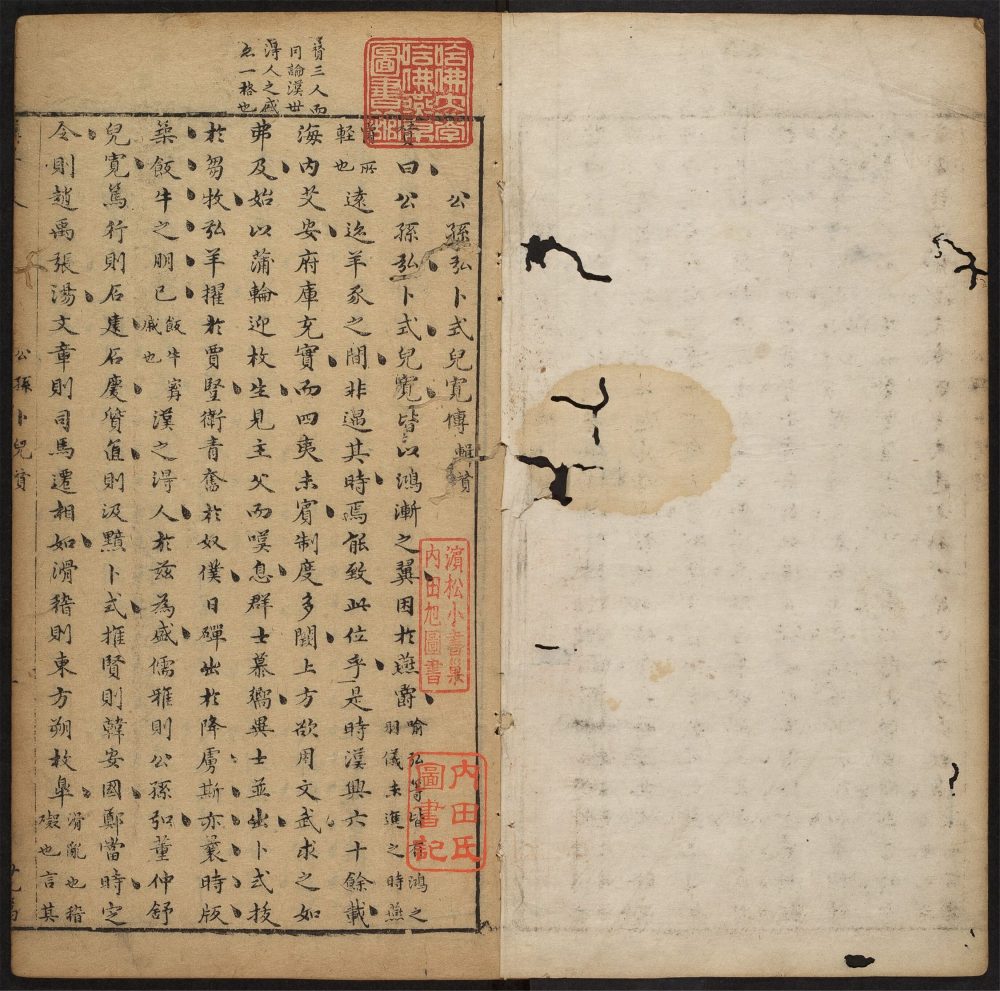 賛三人而
同論漢世
得人之盛
又一格也
哈佛大學
哈佛燕京
圖書館
公孫弘卜式兒寬傳輯貰
贊曰公孫弘卜式兒寬皆以鴻漸之翼困於燕爵喻弘等皆有鴻之羽儀未進之時燕
爵所輕也遠迹羊豕之間非遇其時焉能致此位乎是時漢興六十餘載
海內艾安府庫充實而四夷未賓制度多闕上方欲用文武求之如
弗及始以蒲輪迎枚生見主父而嘆息群士慕嚮異士並出卜式拔
於芻牧弘羊擢於賈豎衛青奮於奴僕日磾出於降虜斯亦曩時版
築飯牛之朋已飯牛甯戚也漢之得人於茲為盛儒雅則公孫弘董仲舒
兒寬篤行則石建石慶質直則汲黯卜式推賢則韓安國鄭當時定
令則趙禹張湯文章則司馬遷相如滑稽則東方朔枚皋滑亂也稽礙也言其
公孫卜兒賛
濱松小書巢
內田旭圖書
內田氏
圖書記